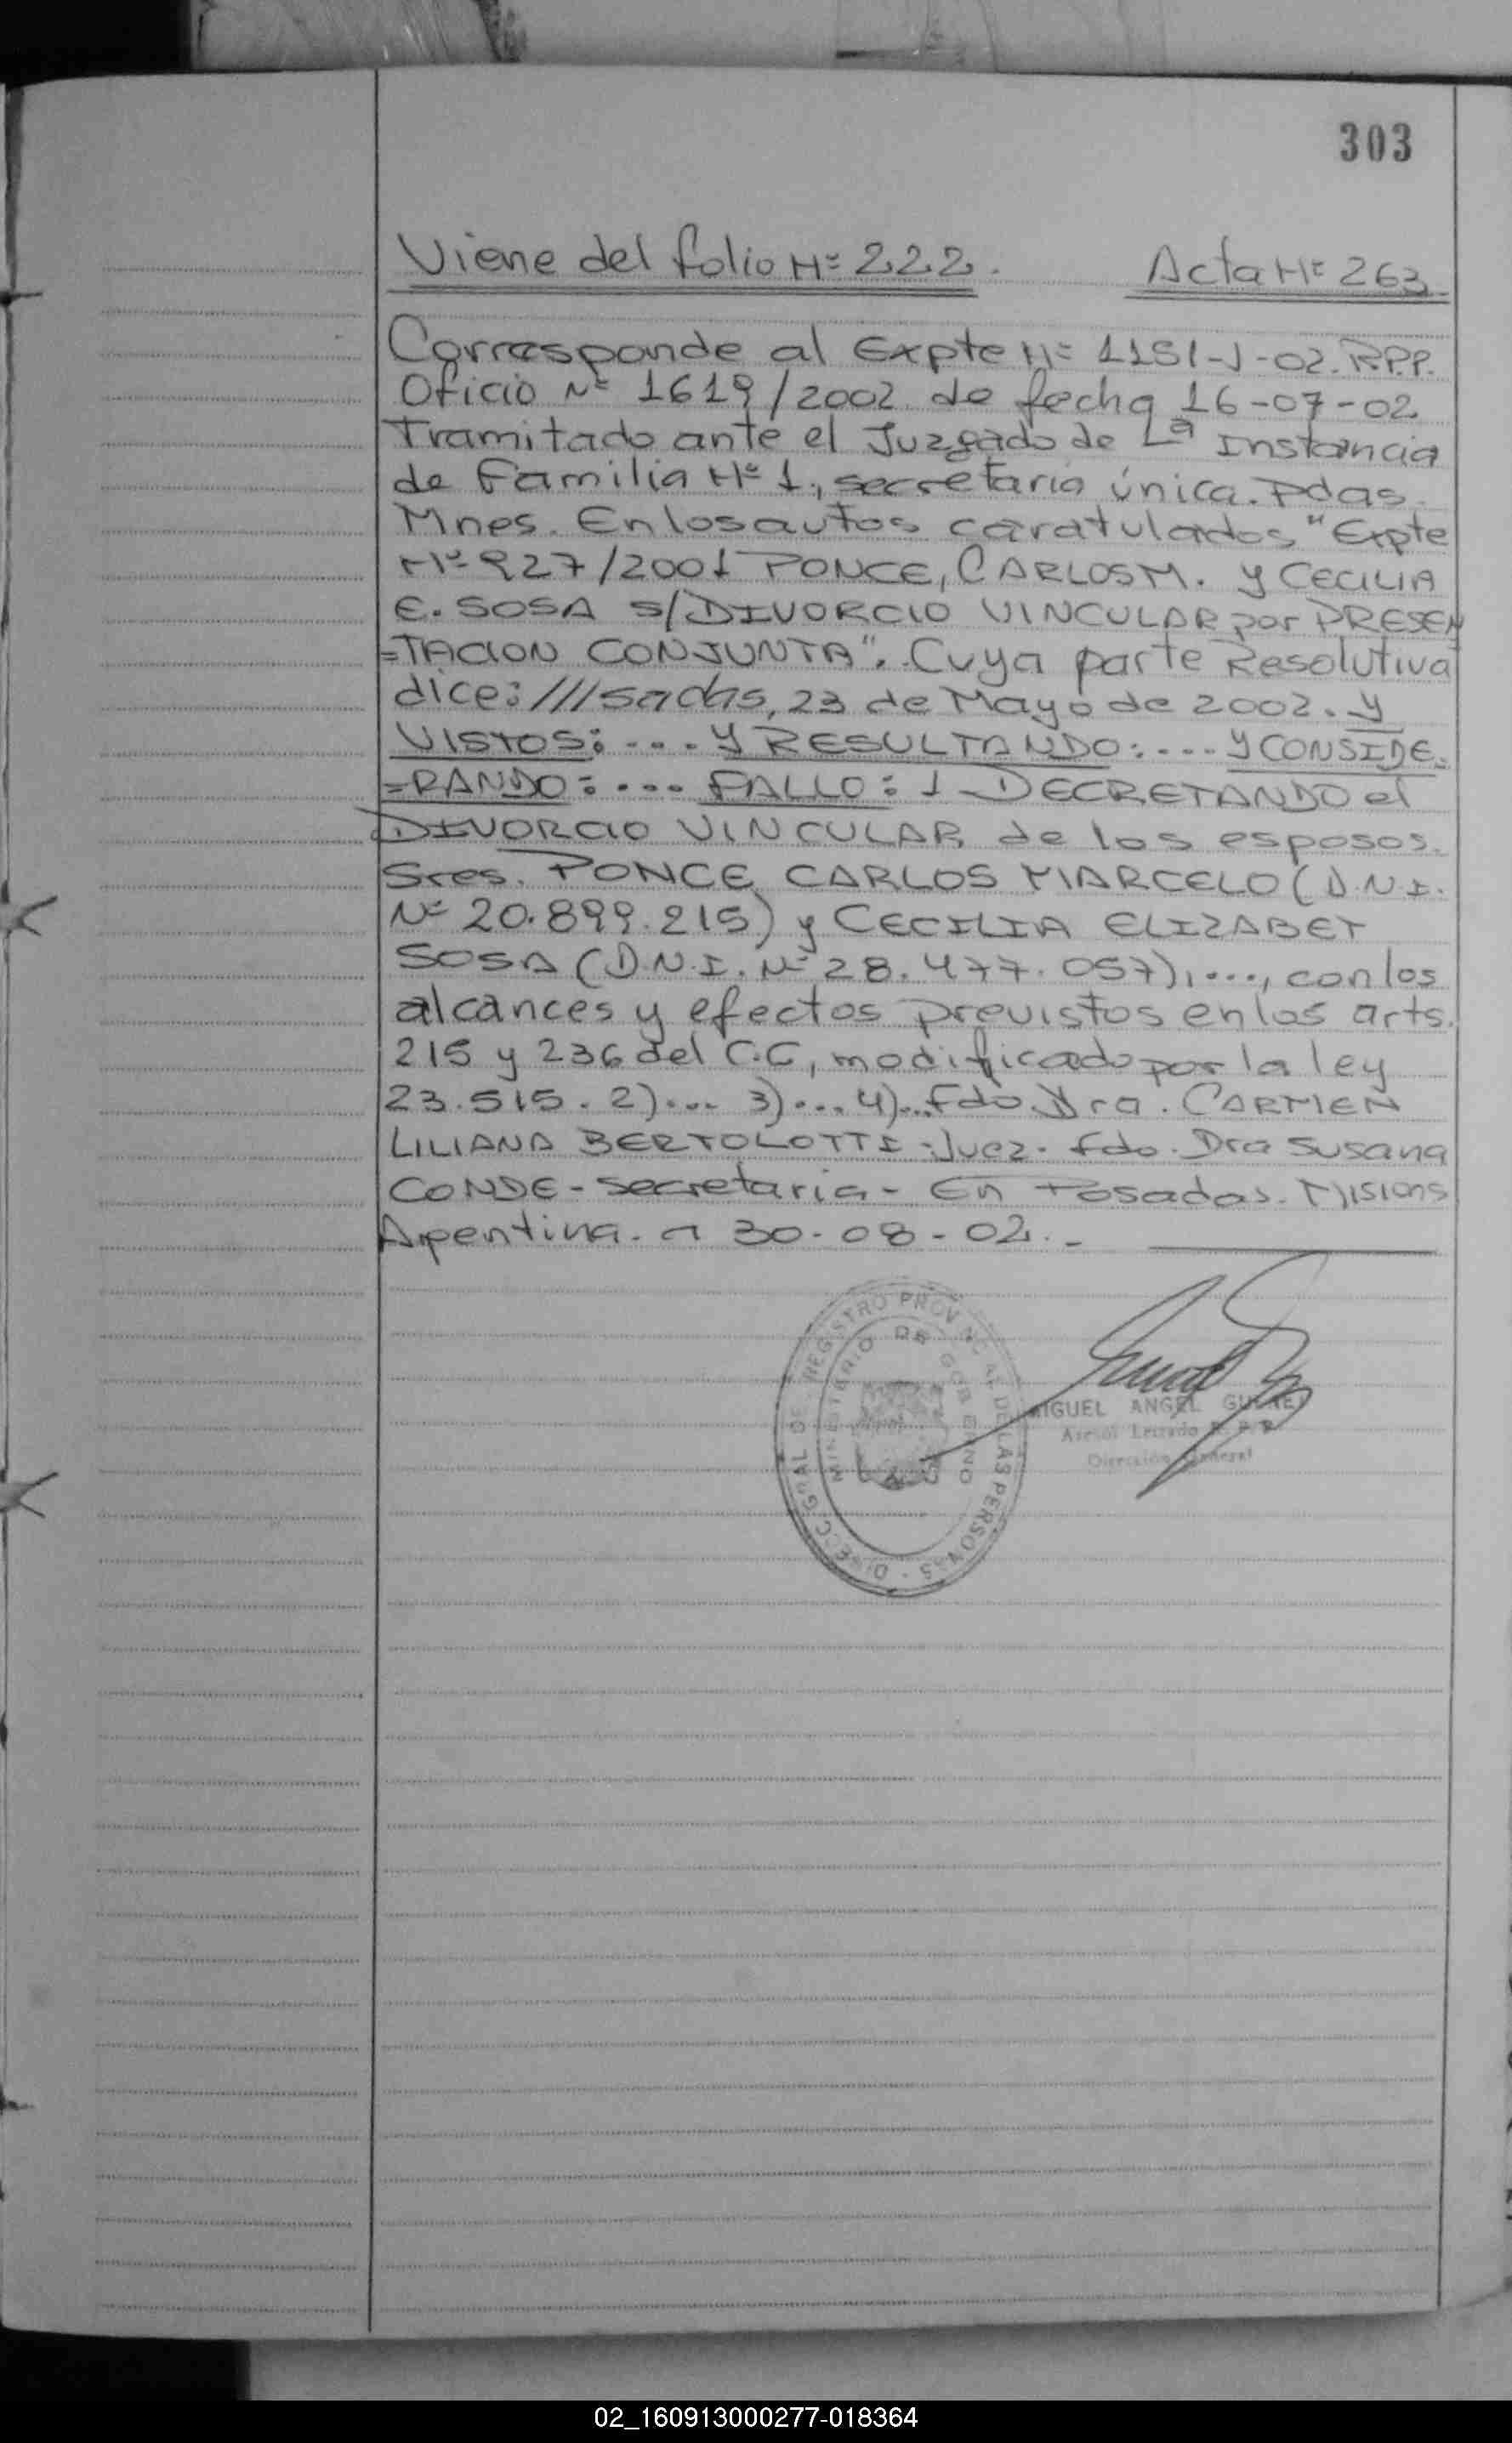 303
Viene del folio Nº 222. Acta Nº 263
Corresponde al Expte Nº 1151-J-02. R.P.P.
Oficio Nº 1619/2002 de fecha 16-07-02
Tramitado ante el Juzgado de 1ª Instancia
de Familia Nº 1., secretaria única. Pdas
Mnes. En los autos caratulados "Expte
Nº 927/2001 PONCE, CARLOS M. y CECILIA
E. SOSA S/DIVORCIO VINCULAR por PRESEN
=TACION CONJUNTA". Cuya parte Resolutiva
dice: ///sadas, 23 de Mayo de 2002. Y
VISTOS: .... Y RESULTANDO: .... Y CONSIDE.
=RANDO: .... FALLO: 1 DECRETANDO el
DIVORCIO VINCULAR de los esposos.
Sres. PONCE CARLOS MARCELO (D.N.I.
Nº 20.899.215) y CECILIA ELIZABET
SOSA (D.N.I. Nº 28.477.057), ..., con los
alcances y efectos previstos en los arts.
215 y 236 del C.C, modificado por la ley
23.515. 2).... 3).... 4)... Fdo. Dra. CARMEN
LILIANA BERTOLOTTI - Juez. fdo. Dra Susana
CONDE - secretaria - En Posadas. Misions
Argentina. a 30-08-02. -
DIRECC. GRAL DE REGISTRO PROVINCIAL DE LAS PERSONAS
MINISTERIO DE GOBIERNO
MIGUEL ANGEL
Asesor Letrado R. P. P.
Dirección General
02_160913000277-018364